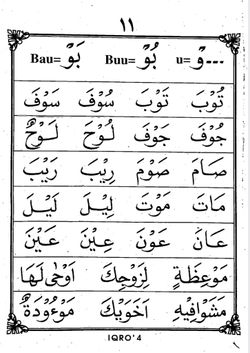 ١١
...وْ =u بُوْ =Buu بَوْ =Bau
تُوْبَ تَوْبَ سُوْفَ سَوْفَ
جُوْفَ جَوْفَ لُوْحَ لَوْحٌ
صَامَ صَوْمَ رِيْبَ رَيْبَ
مَاتَ مَوْتَ لِيْلَ لَيْلَ
عَانَ عَوْنَ عِيْنَ عَيْنَ
مَوْعِظَةٍ لِزَوْجِكَ اَوْحٰى لَهَا
مَشَوْافِيْهِ اَخَوَيْكَ مَوْءُوْدَةٌ
IQRO'4